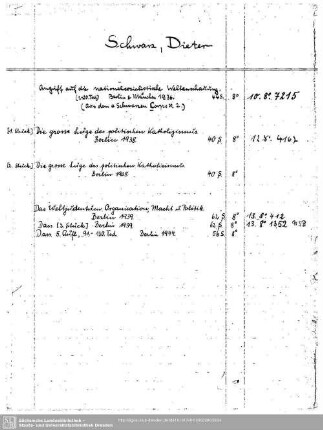 Schwarz, Dieter
Angriff auf die nationalsozialistische Weltanschauung
(100.Tsd) Berlin u München 1936. 44 S. 8° 10. 8°. 7215
(Aus dem "Schwarzen Corps" 2.)
Die grosse Lüge des politischen Katholizismus
Berlin 1938 40 S. 8°
Die grosse Lüge des politischen Katholizismus
Berlin 1938 40 S. 8°
Das Weltjudentum Organisation, Macht u Politik
Berlin 1939 62 S. 8° 13. 8° 412
Dass. [2. Stück] Berlin 1939 62 S. 8° 13. 8° 1352
Dass. 5. Aufl., 91.-100. Tsd Berlin 1944 56 S. 8°
Sächsische Landesbibliothek
Staats- und Universitätsbibliothek Dresden